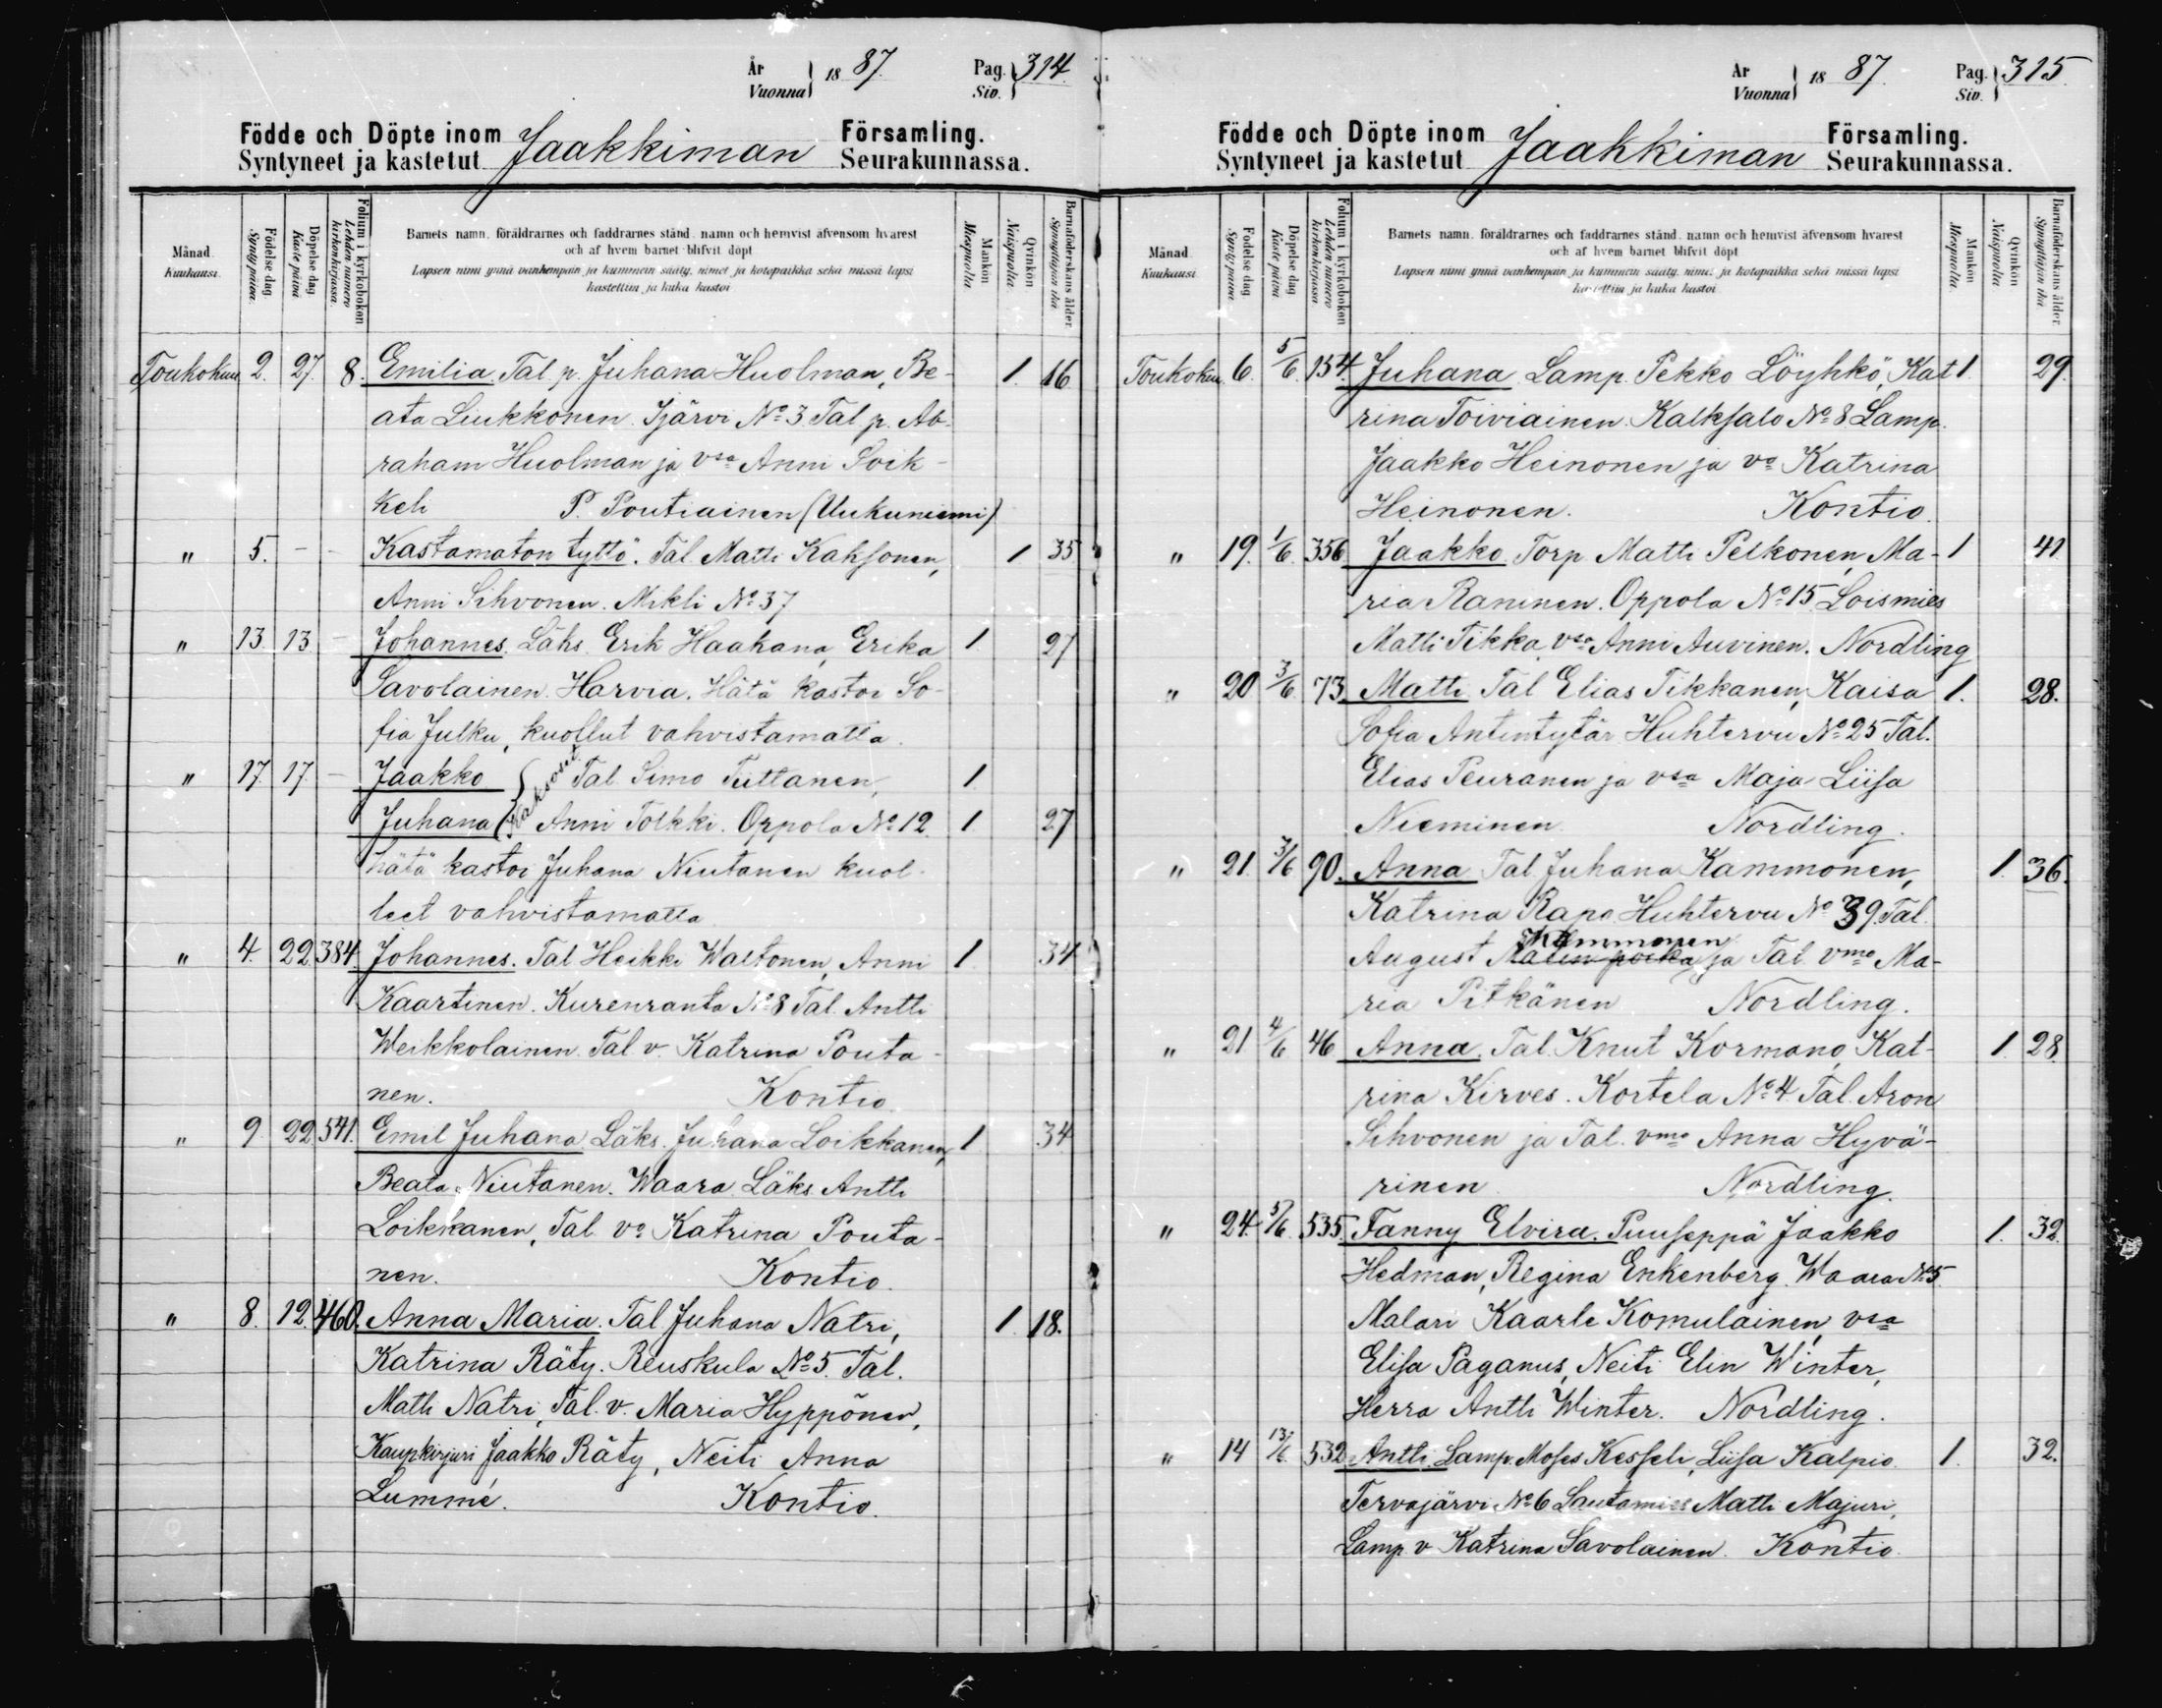 År
Vuonna } 18 87.
Pag.
Siv. } 314.
Födde och Döpte inom Jaakkiman Församling.
Syntyneet ja kastetut Seurakunnassa.
Månad Kuukausi
Födelse dag Synty päivä.
Döpelse dag Kaste päivä
Folium i kyrkoboken Lehden numero kirkonkirjassa.
Barnets namn, föräldrarnes och faddrarnes stånd, namn och hemvist äfvensom hvarest
och af hvem barnet blifvit döpt
Lapsen nimi ynnä vanhempain ja kummein sääty, nimet ja kotopaikka sekä missä lapsi
kastettiin ja kuka kastoi
Mankön Miespuolia
Qvinkön Naispuolia.
Barnaföderskans ålder. Synnyttäjän ikä
Toukokuu 2. 27. 8. Emilia. Tal. p. Juhana Huolman, Be- 1. 16.
ata Liukkonen. Ijärvi No 3 Tal p. Ab-
raham Huolman ja vsa Anni Soik-
keli P. Poutiainen (Uukuniemi)
" 5. - - Kastamaton tyttö. Tal. Matti Kaksonen, 1 35
Anni Sihvonen. Mikli No 37
" 13. 13 - Johannes. Läks. Erik Haakana, Erika 1. 27
Savolainen. Harvia. Hätä kastoi So-
fia Julku, kuollut vahvistamatta.
" 17. 17. - Jaakko } Kaksoset. Tal. Simo Tuttanen, 1.
Juhana Anni Tolkki. Oppola No 12. 1. 27
hätä kastoi Juhana Niutanen kuol-
leet vahvistamatta
" 4. 22. 384 Johannes. Tal. Heikki Waltonen, Anni 1 34
Kaartinen. Kurenranta No 8 Tal. Antti
Weikkolainen. Tal v. Katrina Pouta-
nen. Kontio.
" 9. 22. 541. Emil Juhana Läks. Juhana Loikkanen, 1 34.
Beata Niutanen. Waara Läks. Antti
Loikkanen, Tal. vo Katrina Pouta-
nen. Kontio.
" 8. 12. 460. Anna Maria. Tal Juhana Natri, 1 18.
Katrina Räty. Reuskula No 5. Tal.
Matti Natri, Tal. v. Maria Hyppönen,
Kaupkirjuri Jaakko Räty, Neiti Anna
Lummé. Kontio.
År
Vuonna } 18 87.
Pag.
Siv. } 315.
Födde och Döpte inom Jaakkiman Församling.
Syntyneet ja kastetut Seurakunnassa.
Månad Kuukausi.
Födelse dag Synty päivä.
Döpelse dag Kaste päivä
Folium i kyrkoboken Lehden numero kirkonkirjassa.
Barnets namn, föräldrarnes och faddrarnes stånd, namn och hemvist äfvensom hvarest
och af hvem barnet blifvit döpt
Lapsen nimi ynnä vanhempain ja kummein sääty, nimet ja kotopaikka sekä missä lapsi
kastettiin ja kuka kastoi
Mankön Miespuolia.
Qvinkön Naispuolia.
Barnaföderskans ålder. Synnyttäjän ikä
Toukokuu. 6. 5/6. 154. Juhana Lamp. Pekko Löyhkö, Kat 1. 29.
rina Toiviainen. Kalksalo No 8 Lamp.
Jaakko Heinonen ja vo Katrina
Heinonen. Kontio.
" 19. 1/6. 356 Jaakko. Torp. Matti Pelkonen, Ma- 1 41.
ria Raninen. Oppola No 15 Loismies
Matti Tikka, vsa Anni Auvinen. Nordling
" 20 3/6. 73. Matti. Tal Elias Tikkanen, Kaisa 1. 28.
Sofia Antintytär Huhtervu No 25 Tal.
Elias Peuranen ja vsa Maja Liisa
Nieminen Nordling.
" 21. 3/6 90. Anna Tal Juhana Kammonen, 1. 36.
Katrina Rapo Huhtervu No 39. Tal.
Kammonen
August Matin poika ja Tal. vmo Ma-
ria Pitkänen Nordling.
" 21 4/6 46 Anna. Tal. Knut Kormano, Kat- 1. 28.
rina Kirves. Kortela No 4 Tal. Aron
Sihvonen ja Tal. vmo Anna Hyvä-
rinen Nordling.
" 24. 5/6. 535. Fanny Elvira. Puuseppä Jaakko 1. 32.
Hedman, Regina Enkenberg. Waara No 5.
Malari Kaarle Komulainen, vsa
Elisa Paganus, Neiti Elin Winter,
Herra Antti Winter. Nordling.
" 14 13/6. 532. Antti. Lamp. Moses Kesseli, Liisa Kalpio. 1. 32.
Tervajärvi No 6 Lautamies Matti Majuri,
Lamp. v Katrina Savolainen. Kontio.